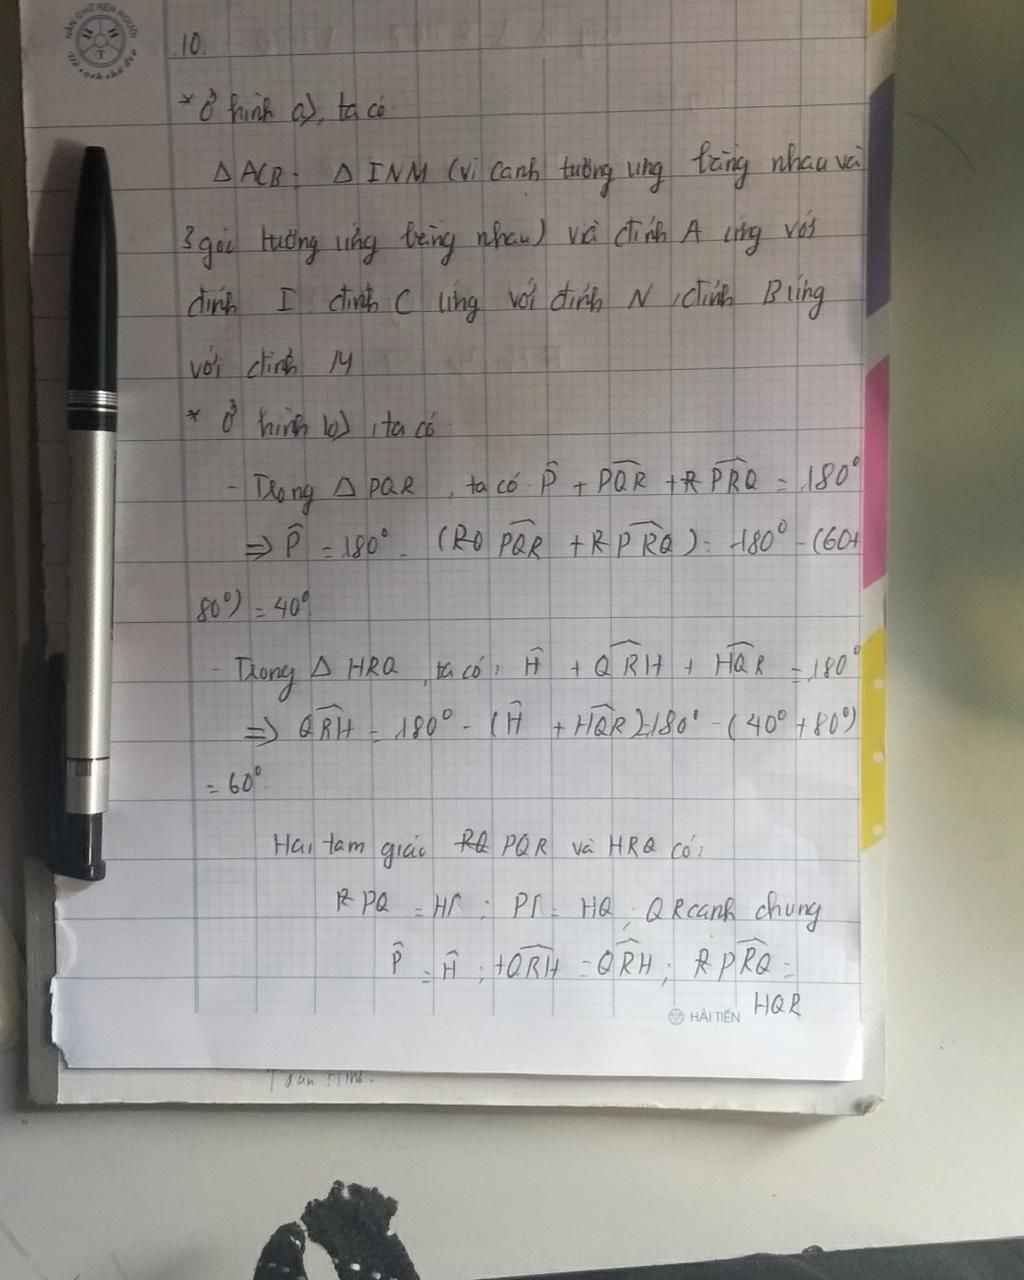 NẮN CHỮ RÈN NGƯỜI
H H T
Vở sạch chữ đẹp
10.
* Ở hình a), ta có
Δ ACB = Δ INM (vì cạnh tương ứng bằng nhau và
3 góc tương ứng bằng nhau) và đỉnh A ứng với
đỉnh I đỉnh C ứng với đỉnh N, đỉnh B ứng
với đỉnh M
* Ở hình b), ta có
- Trong Δ PQR, ta có P̂ + PQR + PRQ = 180°
⇒ P̂ = 180° - (PQR + PRQ) = 180° - (60+
80°) = 40°
- Trong Δ HRQ, ta có: Ĥ + QRH + HQR = 180°
⇒ QRH = 180° - (Ĥ + HQR) = 180° - (40° + 80°)
= 60°
Hai tam giác PQR và HRQ có:
PQ = HR; PR = HQ; QR cạnh chung
P̂ = Ĥ; QRH = QRH; PRQ =
HQR
HẢI TIẾN
Toán Hình.